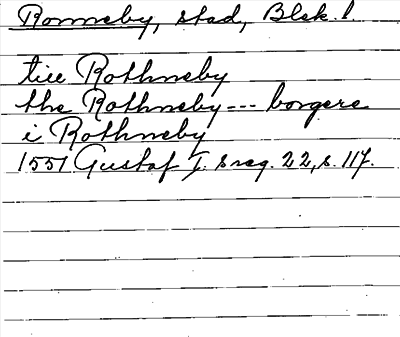 Ronneby, stad, Blek. l.
till Rothneby
the Rothneby --- borgere
i Rothneby
1551 Gustaf I:s reg. 22, s. 117.